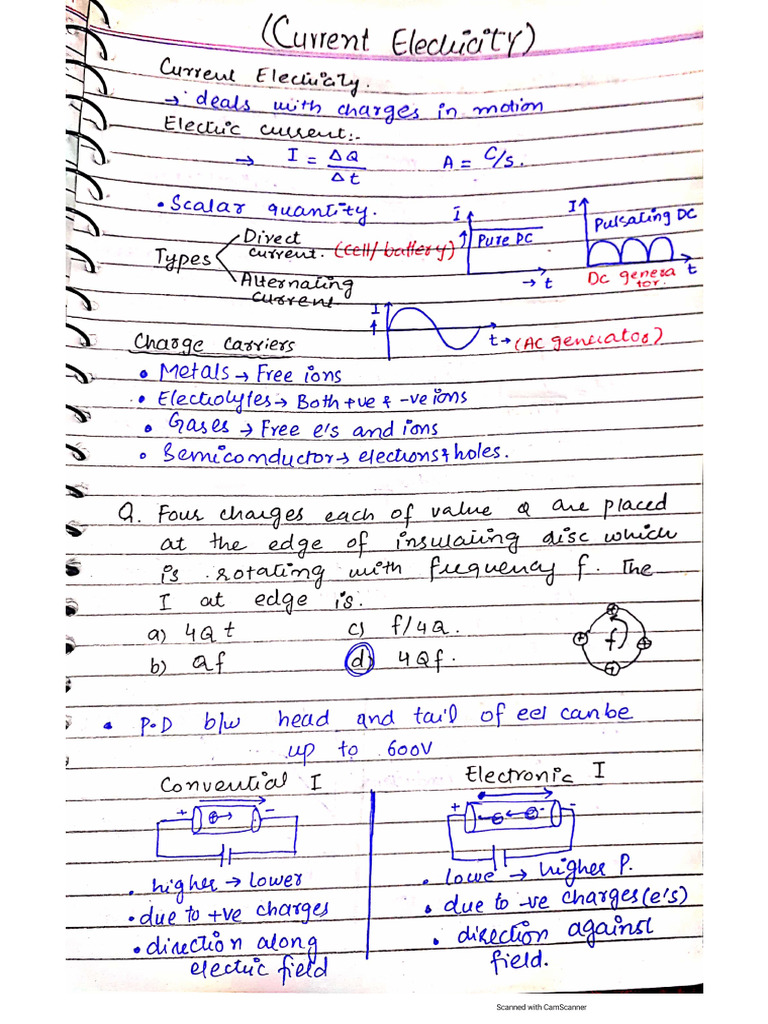 (Current Electricity)
Current Electricity.
→ deals with charges in motion
Electric current:-
→ I = ΔQ / Δt    A = C/s.
• Scalar quantity.
Types
Direct current. (cell/battery)
Alternating current
I Pure DC → t
I Pulsating DC t
DC generator.
I t→ (AC generator)
Charge carriers
• Metals → Free ions
• Electrolytes → Both +ve & -ve ions
• Gases → Free e's and ions
• Semiconductor → electrons & holes.
Q. Four charges each of value Q are placed
at the edge of insulating disc which
is rotating with frequency f. The
I at edge is.
a) 4Qt    c) f/4Q.
b) Qf    d) 4Qf.
+ + + + f
• P.D b/w head and tail of eel can be
up to 600V
Convential I
+ ⊕→ -
• higher → lower
• due to +ve charges
• direction along
electric field
Electronic I
+ ←⊖ ←⊖ -
• lowe → higher P.
• due to -ve charges (e's)
• direction against
field.
Scanned with CamScanner